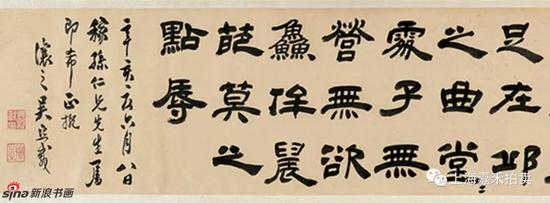 足在邱
之曲堂〻
處子無
營無欲
鱻侔晨
葩莫之
點辱
辛亥夏六月八日
稼孫仁兄先生属
即希正
讓之吳熙載
sina新浪书画
上海嘉禾拍卖